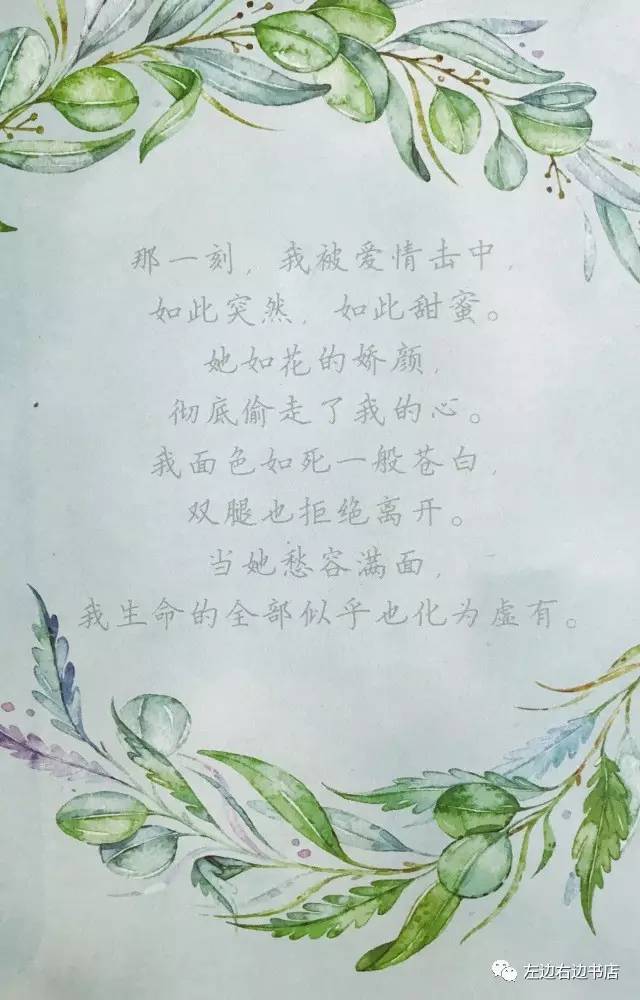 那一刻，我被爱情击中，
如此突然，如此甜蜜。
她如花的娇颜，
彻底偷走了我的心。
我面色如死一般苍白，
双腿也拒绝离开。
当她愁容满面，
我生命的全部似乎也化为虚有。
左边右边书店